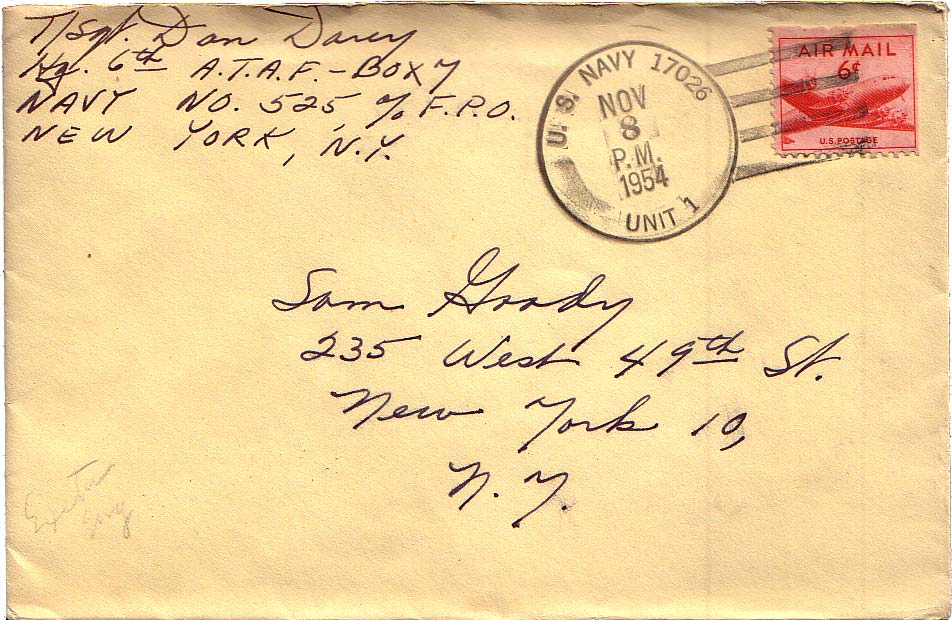 T/Sgt. Dan Darey
Hq. 6th A.T.A.F. - BOX 7
NAVY NO. 525, % F.P.O.
NEW YORK, N.Y.
U.S. NAVY 17026
NOV
8
P.M.
1954
UNIT 1
AIR MAIL
6¢
U.S. POSTAGE
Sam Goody
235 West 49th St.
New York 10,
N.Y.